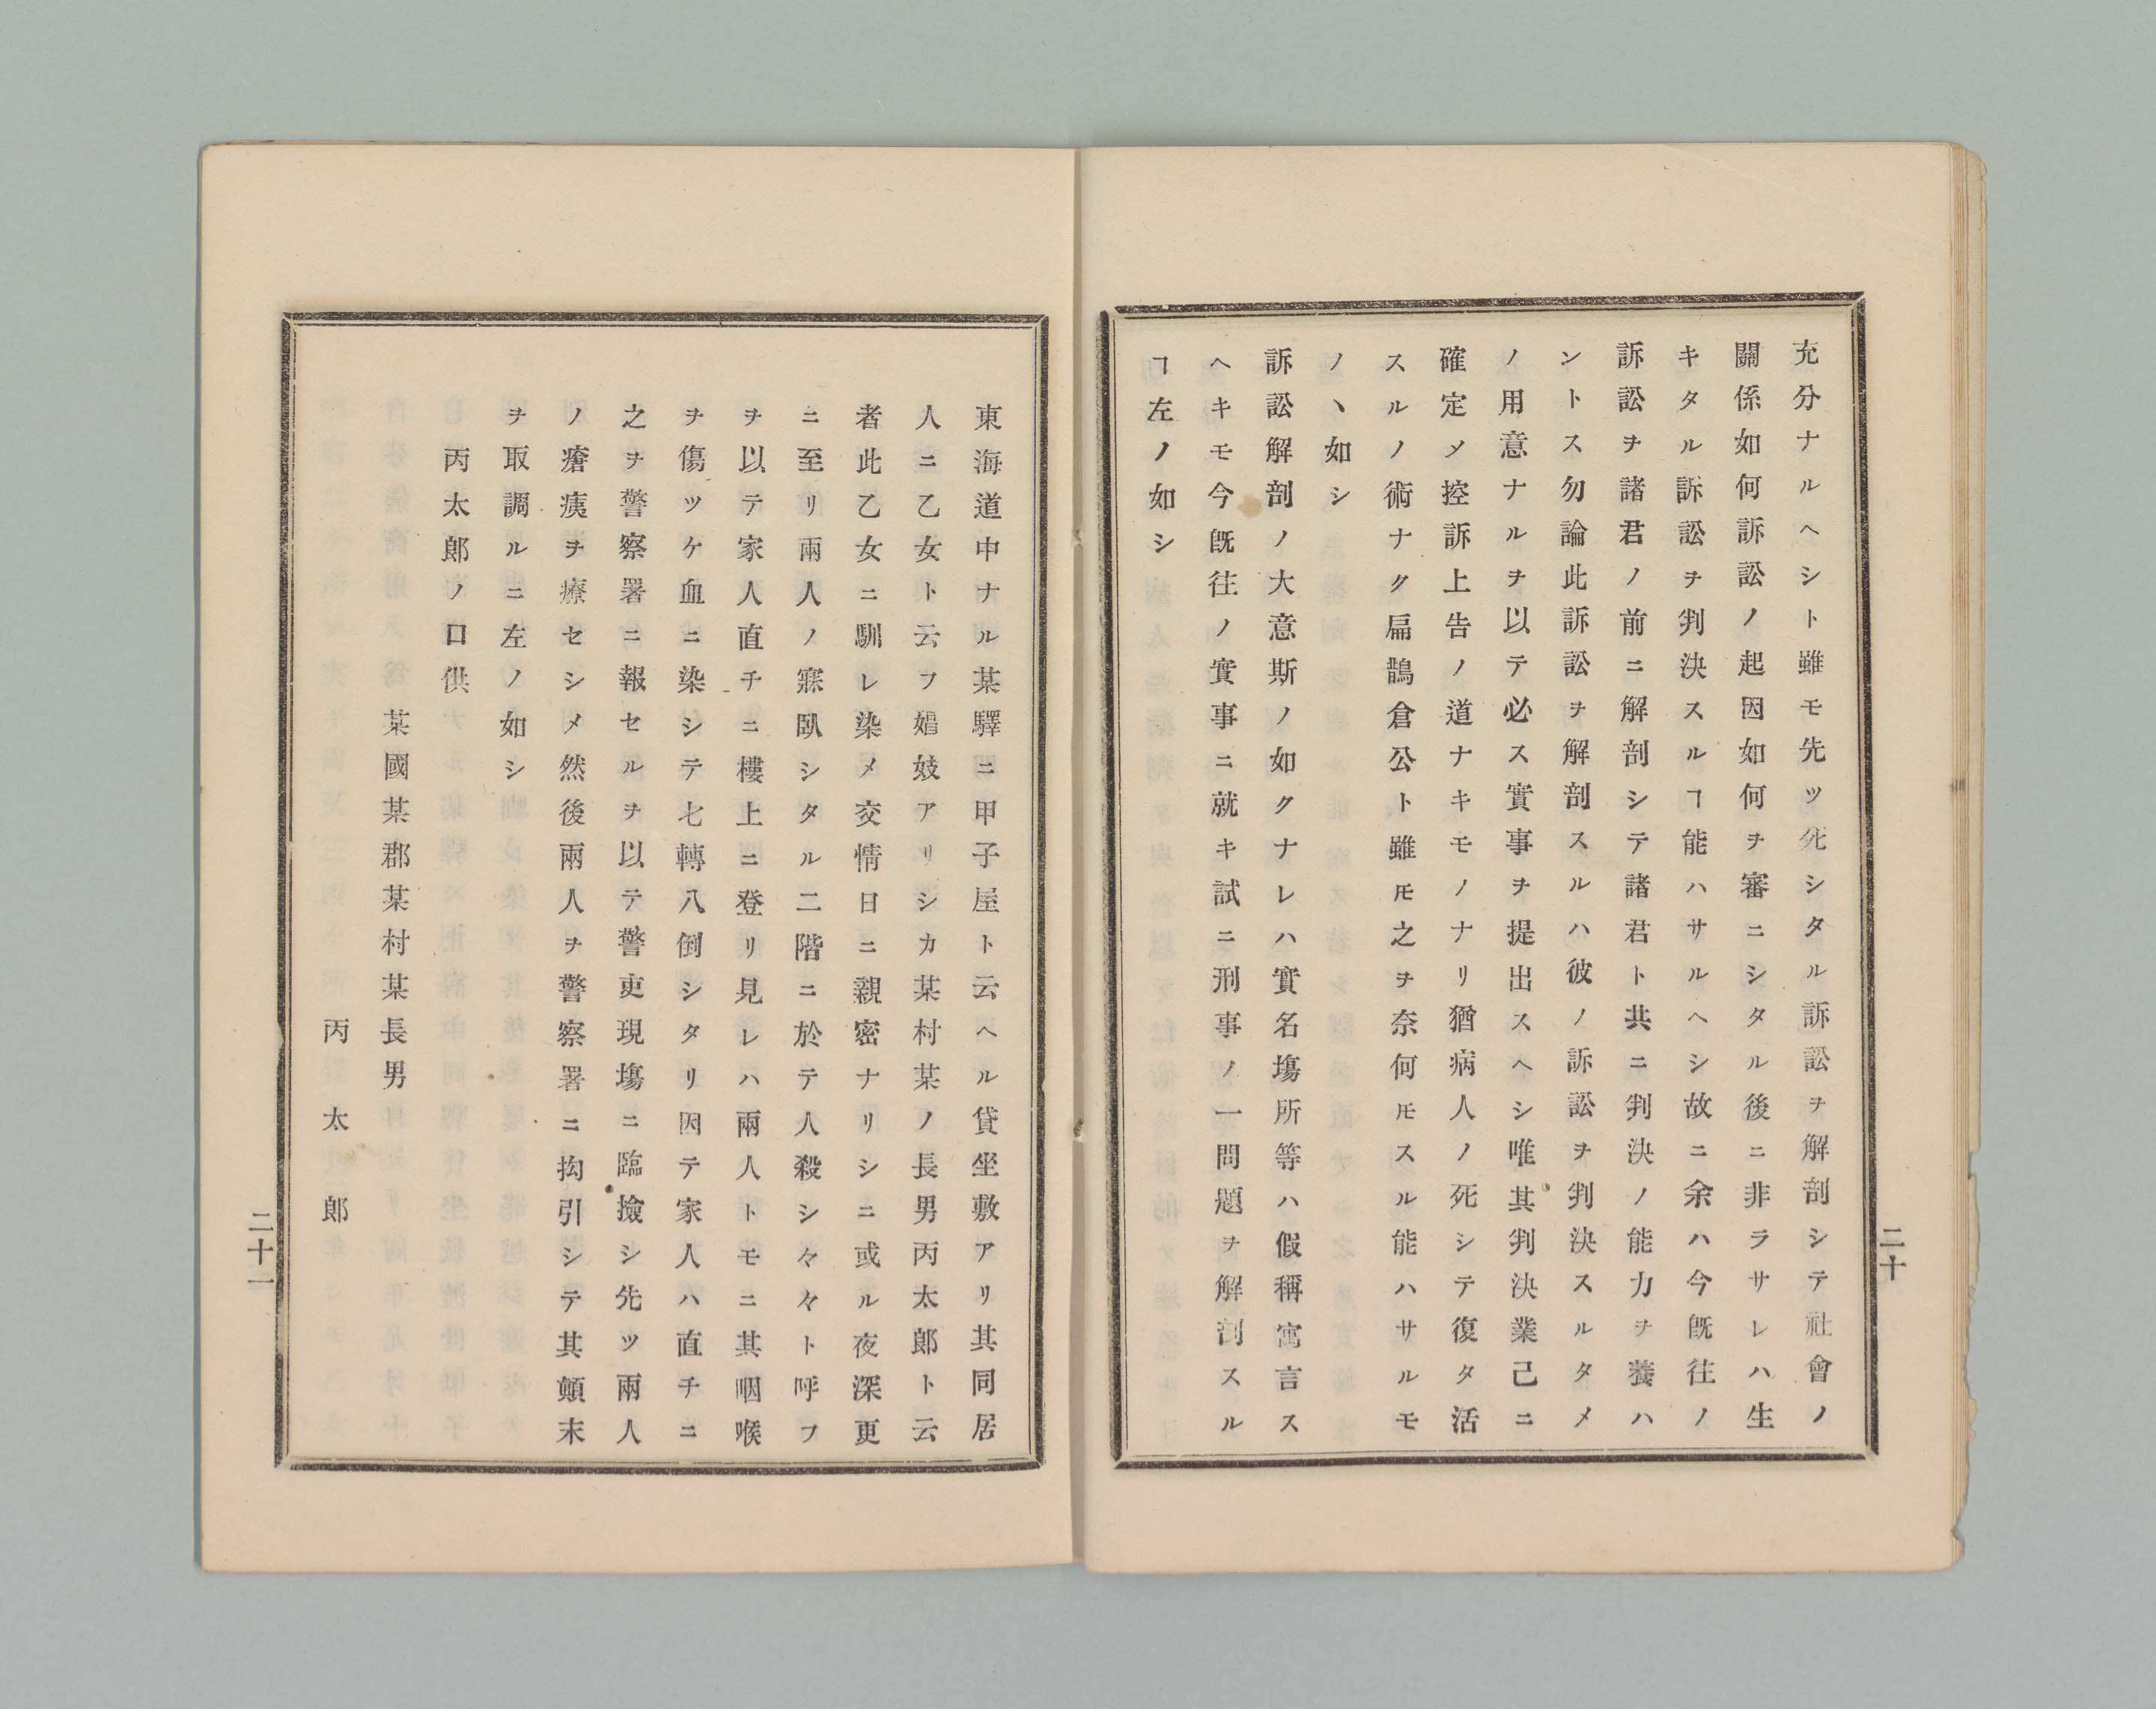 充分ナルヘシト雖モ先ツ死シタル訴訟ヲ解剖シテ社會ノ
關係如何訴訟ノ起因如何ヲ審ニシタル後ニ非ラサレハ生
キタル訴訟ヲ判決スルヿ能ハサルヘシ故ニ余ハ今既往ノ
訴訟ヲ諸君ノ前ニ解剖シテ諸君ト共ニ判決ノ能力ヲ養ハ
ントス勿論此訴訟ヲ解剖スルハ彼ノ訴訟ヲ判決スルタメ
ノ用意ナルヲ以テ必ス實事ヲ提出スヘシ唯其判決業己ニ
確定メ控訴上告ノ道ナキモノナリ猶病人ノ死シテ復タ活
スルノ術ナク扁鵲倉公ト雖𪜈之ヲ奈何𪜈スル能ハサルモ
ノヽ如シ
訴訟解剖ノ大意斯ノ如クナレハ實名塲所等ハ假稱寓言ス
ヘキモ今既往ノ實事ニ就キ試ニ刑事ノ一問題ヲ解剖スル
ヿ左ノ如シ
二十
東海道中ナル某驛ニ甲子屋ト云ヘル貸坐敷アリ其同居
人ニ乙女ト云フ娼妓アリシカ某村某ノ長男丙太郎ト云
者此乙女ニ馴レ染メ交情日ニ親密ナリシニ或ル夜深更
ニ至リ兩人ノ寢臥シタル二階ニ於テ人殺シ々々ト呼フ
ヲ以テ家人直チニ樓上ニ登リ見レハ兩人トモニ其咽喉
ヲ傷ツケ血ニ染シテ七轉八倒シタリ因テ家人ハ直チニ
之ヲ警察署ニ報セルヲ以テ警吏現塲ニ臨撿シ先ツ兩人
ノ瘡痍ヲ療セシメ然後兩人ヲ警察署ニ拘引シテ其顛末
ヲ取調ルニ左ノ如シ
丙太郎ノ口供
某國某郡某村某長男
丙太郎
二十一